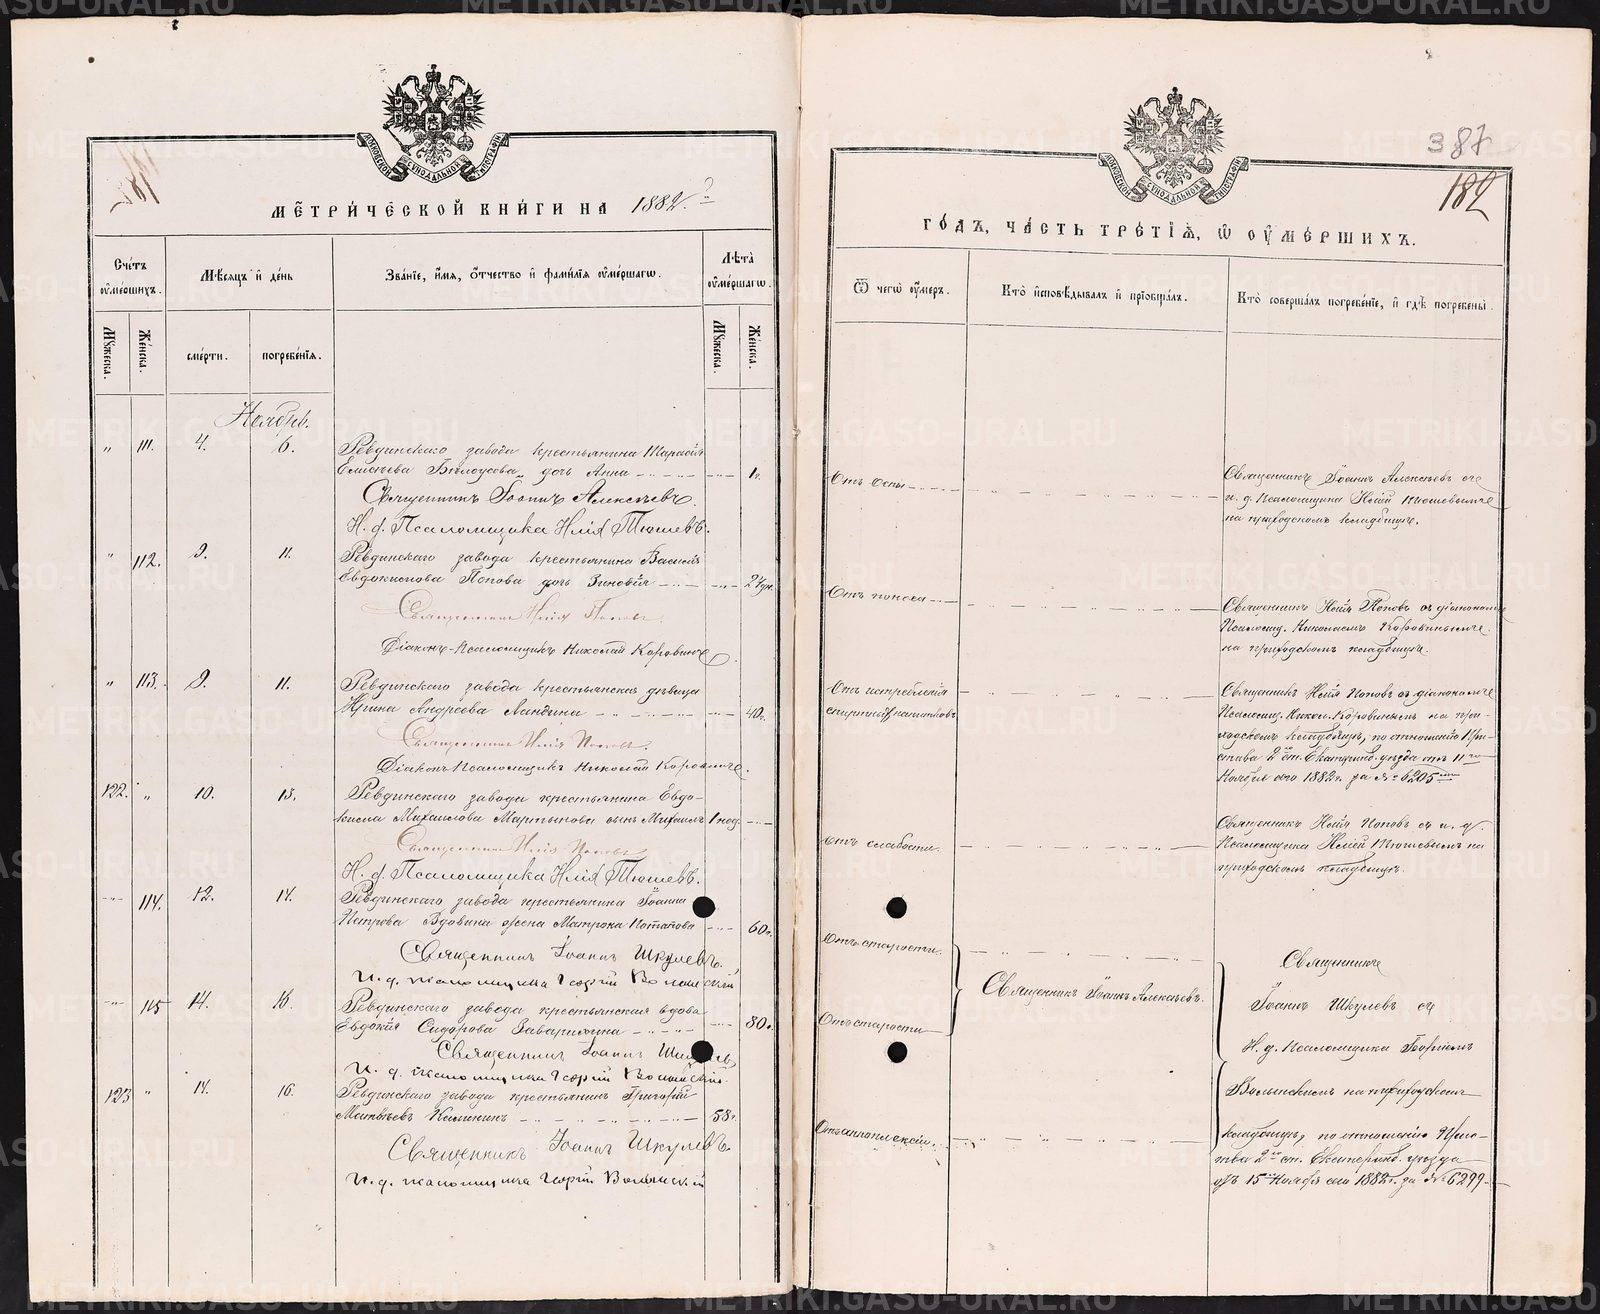 МЕТРИЧЕСКОЙ КНИГИ НА 1882.
Счетъ умершихъ.
Мѣсяцъ и день
Званіе, имя, отчество и фамилія умершагѡ.
Лѣта умершагѡ.
Мужеска.
Женска.
смерти.
погребенія.
Мужеска.
Женска.
Ноябрь.
„ 111. 4. 6. Ревдинскаго завода крестьянина
Елисеева Бѣлоусова дочь Анна 1 г.
Священникъ Іоаннъ Алексѣевъ.
И. д. Псаломщика Илія Тюшевъ.
„ 112. 9. 11. Ревдинскаго завода крестьянина Василія
Евдокимова Попова дочь Зиновія 27 дн.
Священникъ Илія Поповъ.
Діаконъ-Псаломщикъ Николай Коровинъ
„ 113. 9. 11. Ревдинскаго завода крестьянская дѣвица
Ирина Андреева 40 г.
Священникъ Илія Поповъ.
Діаконъ-Псаломщикъ Николай Коровинъ.
122. „ 10. 13. Ревдинскаго завода крестьянина Евдо-
кима Михаилова Мартынова сынъ Михаилъ 1 нед.
Священникъ Илія Поповъ
И. д. Псаломщика Илія Тюшевъ.
114. 12. 14. Ревдинскаго завода крестьянина Іоанна
Петрова Вдовина жена Матрона Потапова 60 г.
Священникъ Іоаннъ Шкулевъ.
И. д. псаломщика Георгій Волынскій
115 14. 16. Ревдинскаго завода крестьянская вдова
Евдокія Сидорова 80 г.
Священникъ Іоаннъ Шкулевъ
И. д. псаломщика Георгій Волынскій.
123 „ 14. 16. Ревдинскаго завода крестьянинъ Григорій
Матвѣевъ Калининъ 58 г.
Священникъ Іоаннъ Шкулевъ.
И. д. псаломщика Георгій Волынскій
387
182
ГОДЪ, ЧАСТЬ ТРЕТІЯ, Ѡ УМЕРШИХЪ.
Ѿ чегѡ умеръ.
Кто исповѣдывалъ и пріобщалъ.
Кто совершалъ погребеніе, и гдѣ погребены.
Отъ оспы
Священникъ Іоаннъ Алексѣевъ съ
и. д. Псаломщика Иліей Тюшевымъ
на приходскомъ кладбищѣ.
Отъ поноса
Священникъ Илія Поповъ съ діакономъ
Псаломщ. Николаемъ Коровинымъ
на приходскомъ кладбищѣ.
Отъ истребленія
спиртныхъ напитковъ
Священникъ Илія Поповъ съ діакономъ
Псаломщ. Никол. Коровинымъ на при-
ходскомъ кладбищѣ, по отношенію При-
става 2го ст. Екатеринб. уѣзда отъ 11го
Ноября сего 1882 г. за № 6205
отъ слабости.
Священникъ Илія Поповъ съ и. д.
Псаломщика Иліей Тюшевымъ на
приходскомъ кладбищѣ.
Отъ старости
Отъ старости
Священникъ Іоаннъ Алексѣевъ.
Отъ апоплексіи.
Священникъ
Іоаннъ Шкулевъ съ
И. д. Псаломщика Георгіемъ
Волынскимъ на приходскомъ
кладбищѣ, по отношенію При-
става 2го ст. Екатеринб. уѣзда
отъ 15 Ноября сего 1882 г. за № 6299